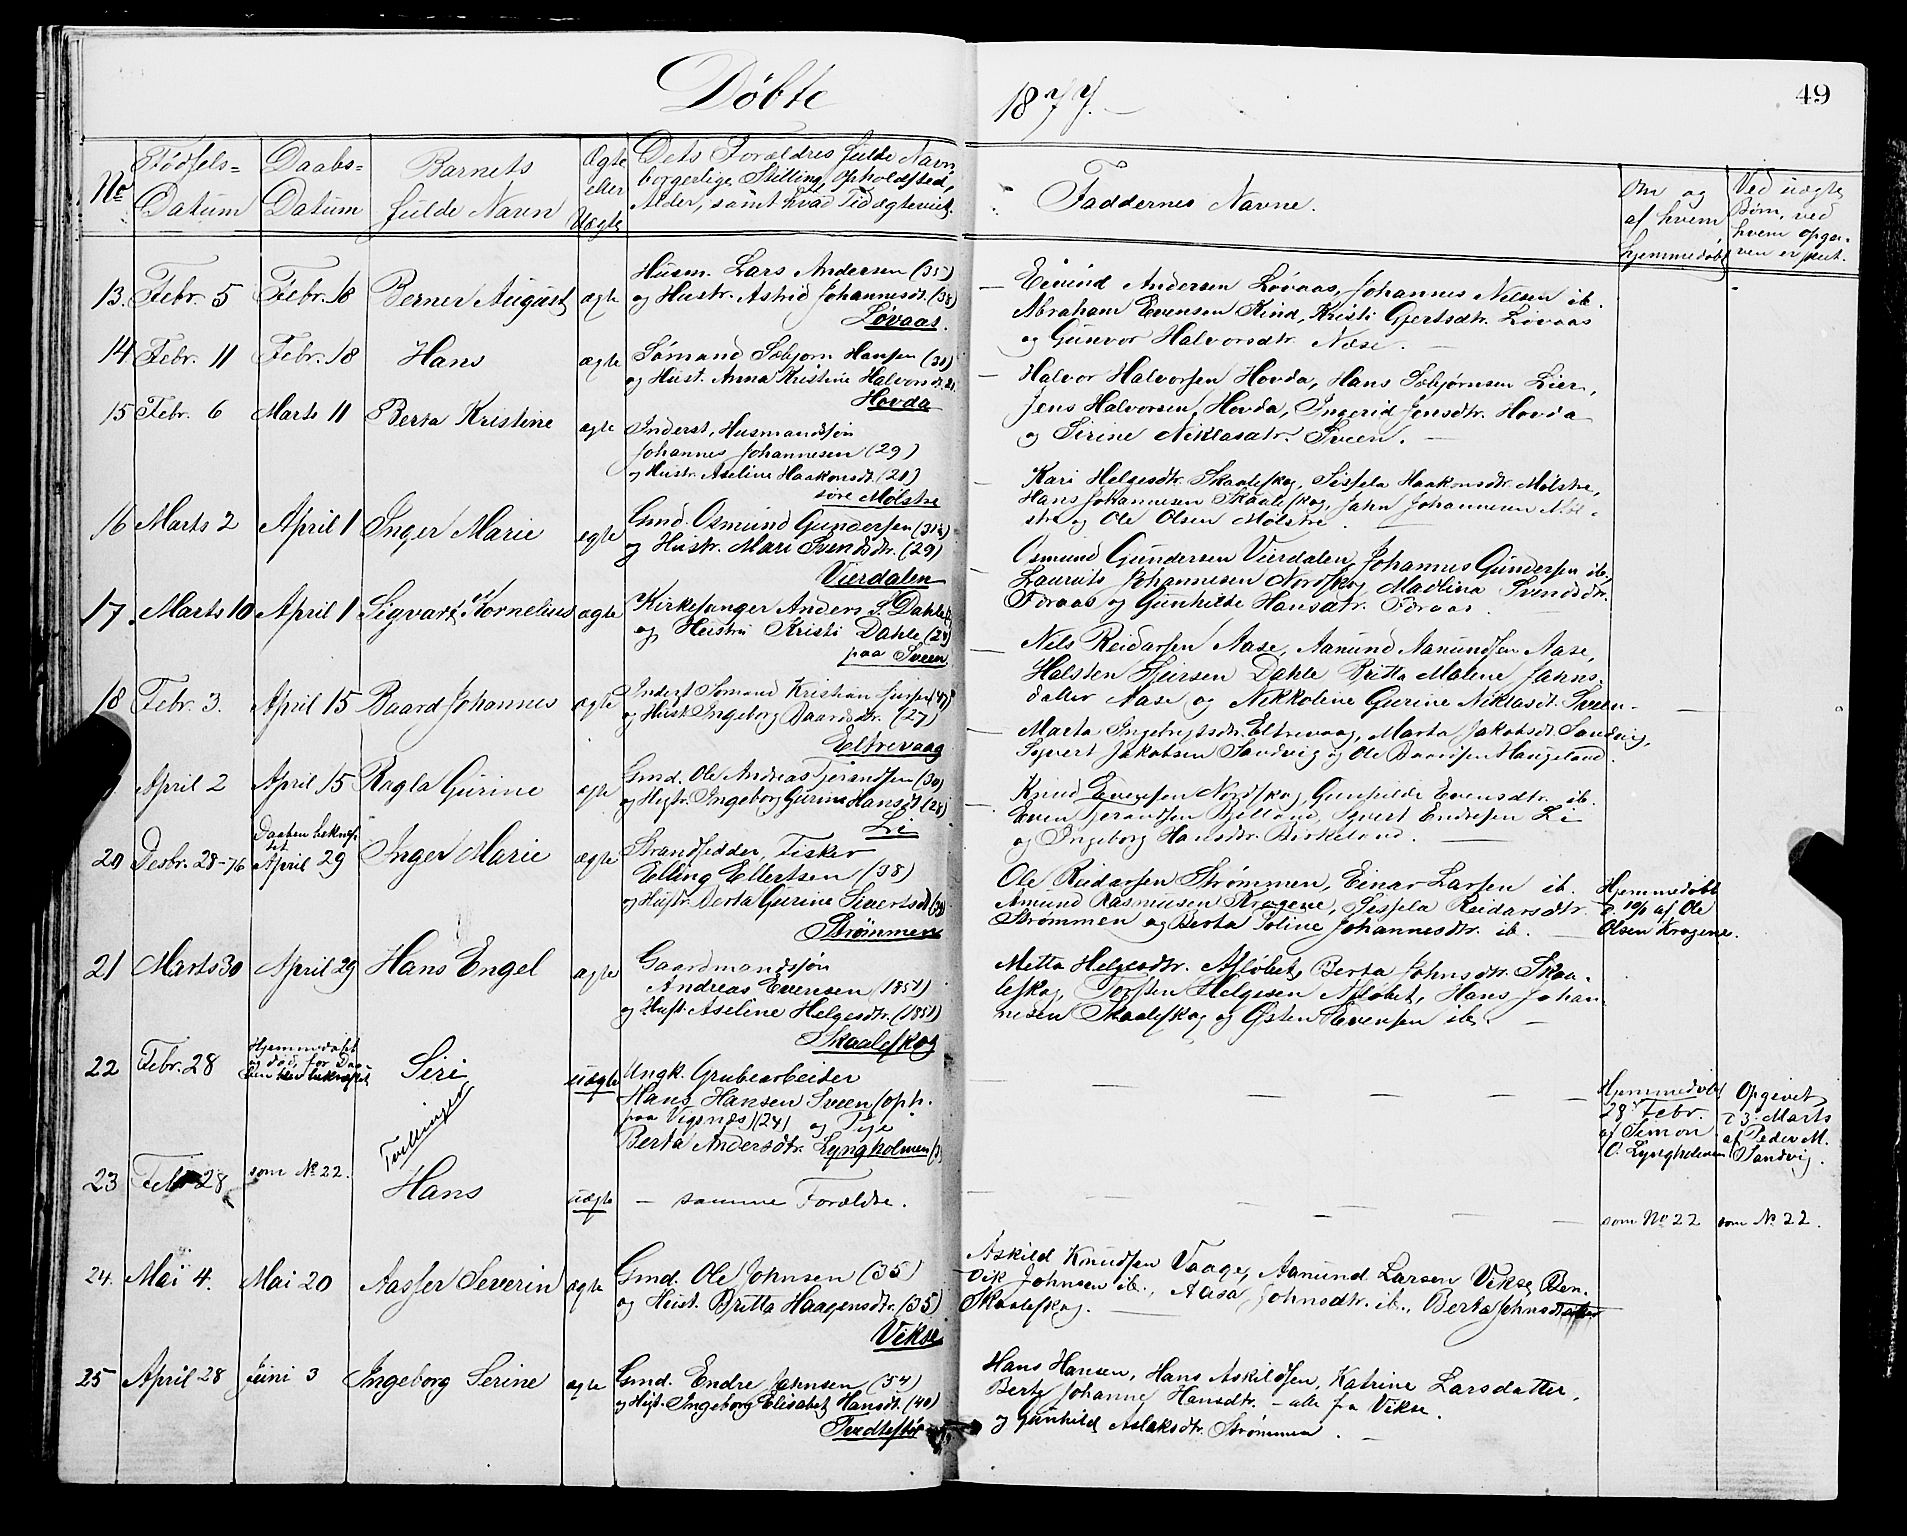 Døbte
1877.
49
No
Fødsels-
Datum
Daabs-
Datum
Barnets
fulde Navn
Ægte
eller
Uægte
Dets Forældres fulde Navn
borgerlige Stilling, Opholdssted,
Alder, samt hvad Tid ægteviet.
Faddernes Navne.
Om og
af hvem
hjemmedøbt
Ved uægte
Børn, ved
hvem Opga-
ven er skeet.
13. Febr. 5 Febr. 18 Berner August ægte
Husm. Lars Andersen (35)
og Hustr. Astrid Johannesdt. (38)
Løvaas.
Eivind Andersen Løvaas, Johannes Nilsen ib.
Abraham Evensen Kind, Kristi Gjertsdtr. Løvaas
og Gunvor Halvorsdtr. Næse.
14 Febr. 11 Febr. 18 Hans ægte
Sømand Sebjorn Hansen (31)
og Hust. Anna Kristine Halvorsdt.
Hovda
Halvor Halvorsen Hovda, Hans Sebjørnsen Lier,
Jens Halvorsen Hovda, Ingerid Jensdtr. Hovda
og Serine Niklasdtr. Sveen.
15 Febr. 6 Marts 11 Berta Kristine ægte
Inderst, Husmandssøn
Johannes Johannesen (29)
og Hustr. Aseline Haakonsdt. (21)
søre Mølstre
Kari Helgesdtr. Skaaleskog, Sissela Haakonsdtr. Mølstre,
Hans Johannesen Skaaleskog, Jahn Johannesen Møl-
stre og Ole Olsen Mølstre.
16 Marts 2 April 1 Inger Marie egte
Gmd. Osmund Gundersen (31½)
og Hustr. Mari Svendsdtr. (29)
Vierdalen
Osmund Gundersen Vierdalen, Johannes Gundersen ib.
Laurits Johannesen Nordskog, Madlina Svendsdtr.
Foraas og Gunhilde Hansdtr. Foraas.
17. Marts 10 April 1 Sigvart Kornelius ægte
Kirkesanger Anders S. Dahle
og Hustru Kristi Dahle (24)
paa Sveen
Nels Reidarsen Aase, Aamund Aamundsen Aase,
Halsten Sjursen Dahle Britta Malene Jahns-
datter Aase og Nikkoline Gurine Niklasdt. Sveen.
18 Febr. 3. April 15 Baard Johannes ægte
Inderst Sømand Kristian (47)
og Hust. Ingeborg Baardsdtr. (27)
Eltrevaag
Marta Ingebrigtsdtr. Eltrevaag, Marta Jakobsdt. Sandvig,
Sjvert Jakobsen Sandvig og Ole Baardsen Haugeland.
April 2 April 15 Ragla Gurine ægte
Gmd. Ole Andreas Tjerandsen (30)
og Hustr. Ingeborg Gurine Hansdt. (28)
Li
Knud Evensen Nordskog, Gunhilde Evensdtr. ib.
Even Tjerandsen Bjelland, Sjvert Endresen Li
og Ingeborg Hansdtr. Birkeland.
20 Desbr. 28-76 Daaben bekræf-
tet
April 29 Inger Marie ægte
Strandsedder, Fisker
Elling Ellertsen (38)
og Hustr. Berta Gurine Sivertsdt.
Strømmen
Ole Reidarsen Strømmen, Einar Larsen ib.
Amund Rasmusen Kragene, Sessela Reidarsdtr.
Strømmen og Berta Soline Johannesdtr. ib.
Hjemmedøbt
d. 10/1 af Ole
Olsen Kragene.
21 Marts 30 April 29 Hans Engel ægte
Gaardmandssøn
Andreas Evensen (1851)
og Hust. Aseline Helgesdtr. (1851)
Skaaleskog
Metta Helgesdtr. Afløbet, Berta Johnsdtr. Skaa-
leskog, Torsten Helgesen Afløbet, Hans Johan-
nesen Skaaleskog og Østen Evensen ib.
22 Febr. 28 Hjemmedøbt
og død, før Daa-
ben blev bekræftet Siri uægte
Tvillinger
Ungk. Grubearbeider
Hans Hansen Sveen (oph.
paa Vigsnes) (24) og Pige
Berta Andersdtr. Lyngholmen
Hjemmedøbt
28 Febr.
af Simon
O. Lyngholmen
Opgivet
d 3 Marts
af Peder M.
Sandvig.
23 Febr 28 som No 22. Hans uægte
— samme Forældre.
som No 22
som No 22.
24. Mai 4. Mai 20 Aasser Severin ægte
Gmd. Ole Johnsen (35)
og Hust. Britta Haagensdtr. (35)
Vikse
Askild Knudsen Vaage, Aamund Larsen Vikse, Ben-
dik Johnsen ib., Aasa Johnsdtr. ib., Berta Johnsdatter
Skaaleskog.
25 April 28 Juni 3 Ingeborg Serine ægte
Gmd. Endre Jahnsen (54)
og Hust. Ingeborg Elisabet Hansdt. (40)
Hans Hansen, Hans Askildsen, Katrine Larsdatter,
Berte Johanne Hansdtr. — alle fra Vikse.
og Gunhild Aslaksdtr. Strømmen.